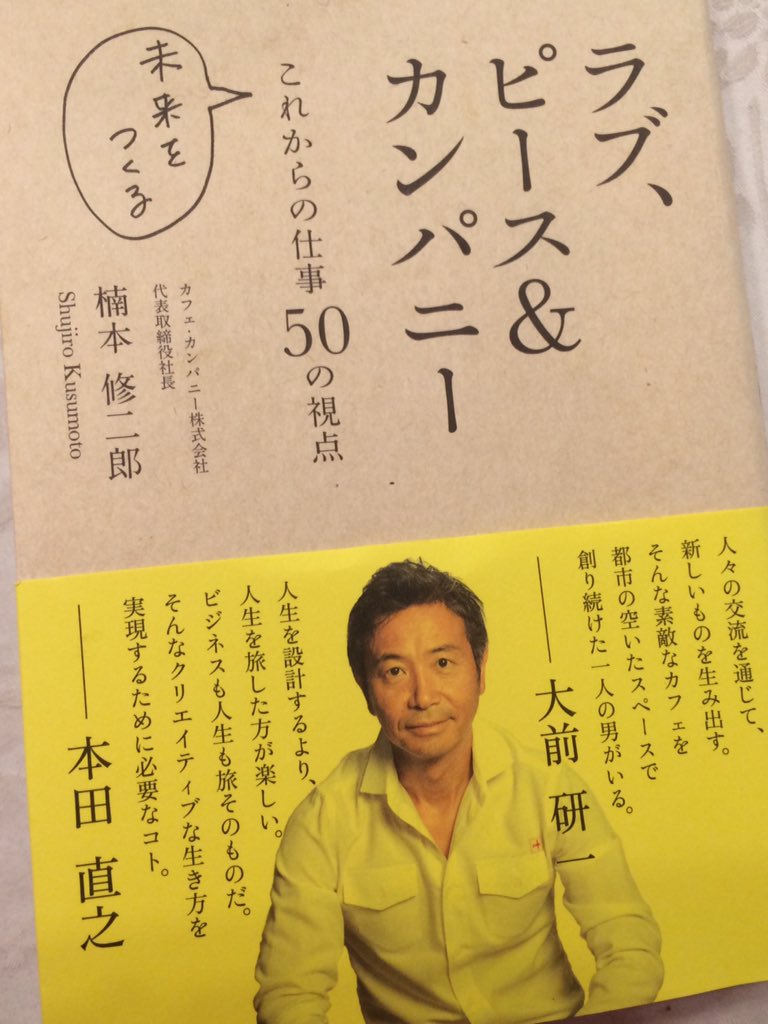 ラブ、
ピース&
カンパニー
これからの仕事50の視点
未来を
つくる
カフェ・カンパニー株式会社
代表取締役社長
楠本 修二郎
Shujiro Kusumoto
人々の交流を通じて、
新しいものを生み出す。
そんな素敵なカフェを
都市の空いたスペースで
創り続けた一人の男がいる。
——大前 研一
人生を設計するより、
人生を旅した方が楽しい。
ビジネスも人生も旅そのものだ。
そんなクリエイティブな生き方を
実現するために必要なコト。
——本田 直之